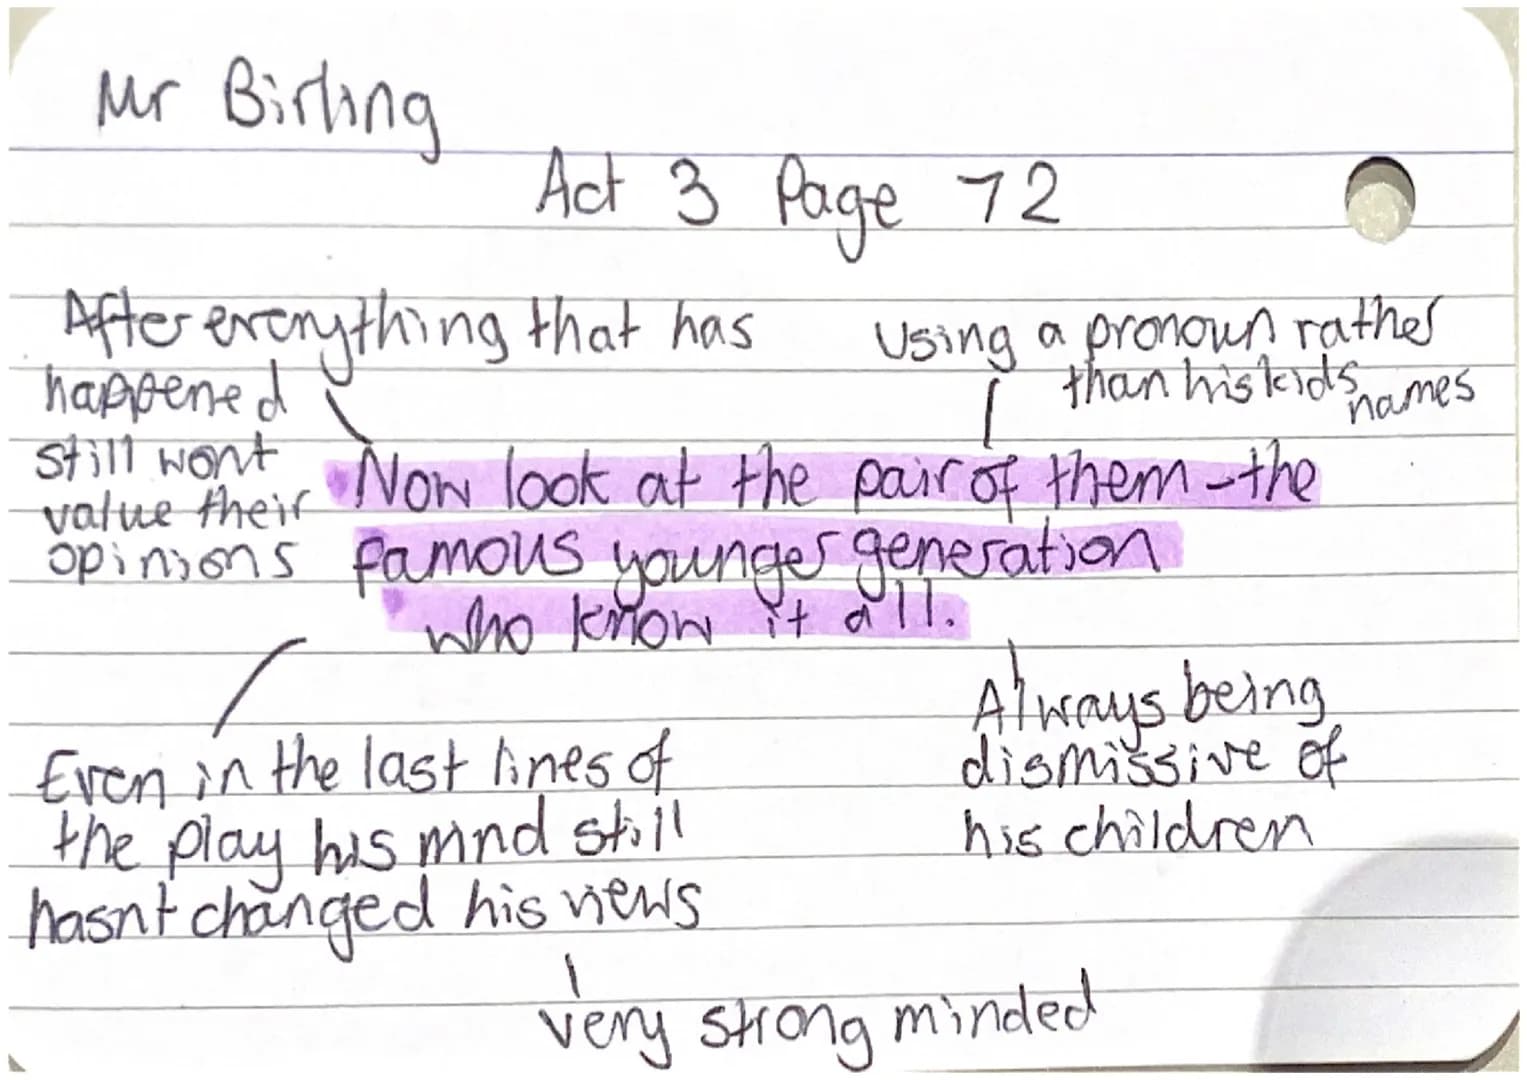 Mr Birling
Act 3 Page 72
After everything that has
happened
still wont
value their
opinions
Using a pronoun rather
than his kids
names
Now look at the pair of them - the
famous younger generation
who know it all.
Always being
dismissive of
his children
Even in the last lines of
the play his mind still
hasnt changed his views
very strong minded